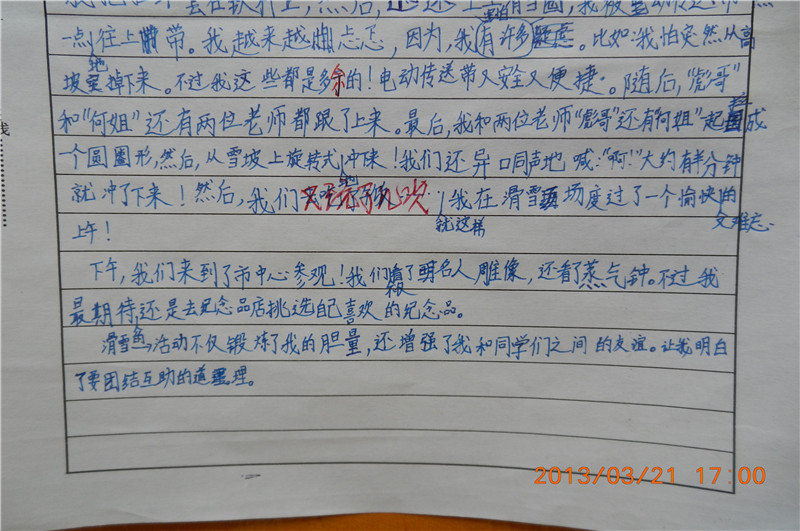 一点往上带。我越来越忐忑，因为，我有许多疑虑。比如：我怕突然从高
坡掉下来。不过我这些都是多余的！电动传送带又安全又便捷。随后，“彪哥”
和“何姐”还有两位老师都跟了上来。最后，我和两位老师“彪哥”还有“何姐”一起围成
一个圆圈形，然后，从雪坡上旋转式地冲下来！我们还异口同声地喊：“啊！”大约有半分钟
就冲了下来！然后，我们
就这样，我在滑雪场度过了一个愉快又难忘的
上午！
下午，我们来到了市中心参观！我们看了明名人雕像，还看了蒸气钟。不过我
最期待还是去纪念品店挑选自己喜欢的纪念品。
滑雪活动不仅锻炼了我的胆量，还增强了我和同学们之间的友谊。让我明白
了要团结互助的道理。
2013/03/21 17:00